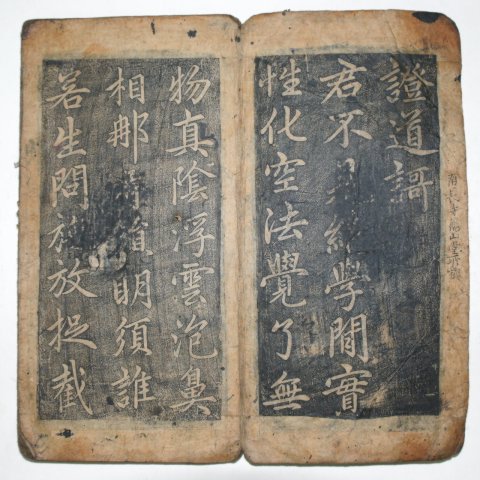 證道謌
君不見絶學閒實
性化空法覺了無
物真陰浮雲泡鼻
相那明須誰
若生問施放捉截